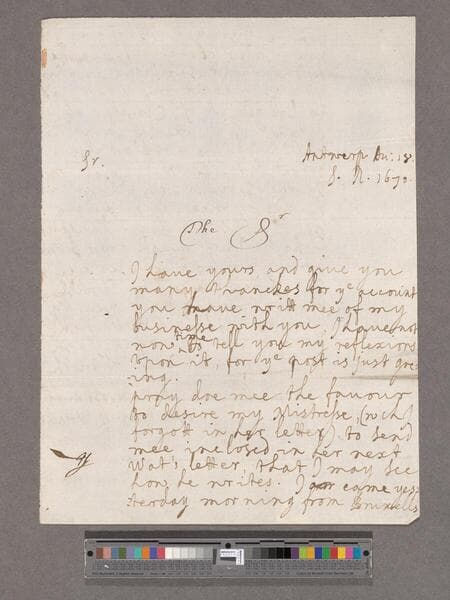 Sr.
Antwerp Au: 18.
S. N. 1670.
The Sr
I have yours and give you
many thanckes for ye account
you have writt mee of my
businesse with you, I have not
now time to tell you my reflexions
upon it, for ye post is just goe-
ing.
pray doe mee the favour
to desire my Mistresse, (wch I
forgott in her letter) to send
mee inclosed in her next
Wat's letter, that I may see
how he writes. I came yes-
terday morning from Bruxells